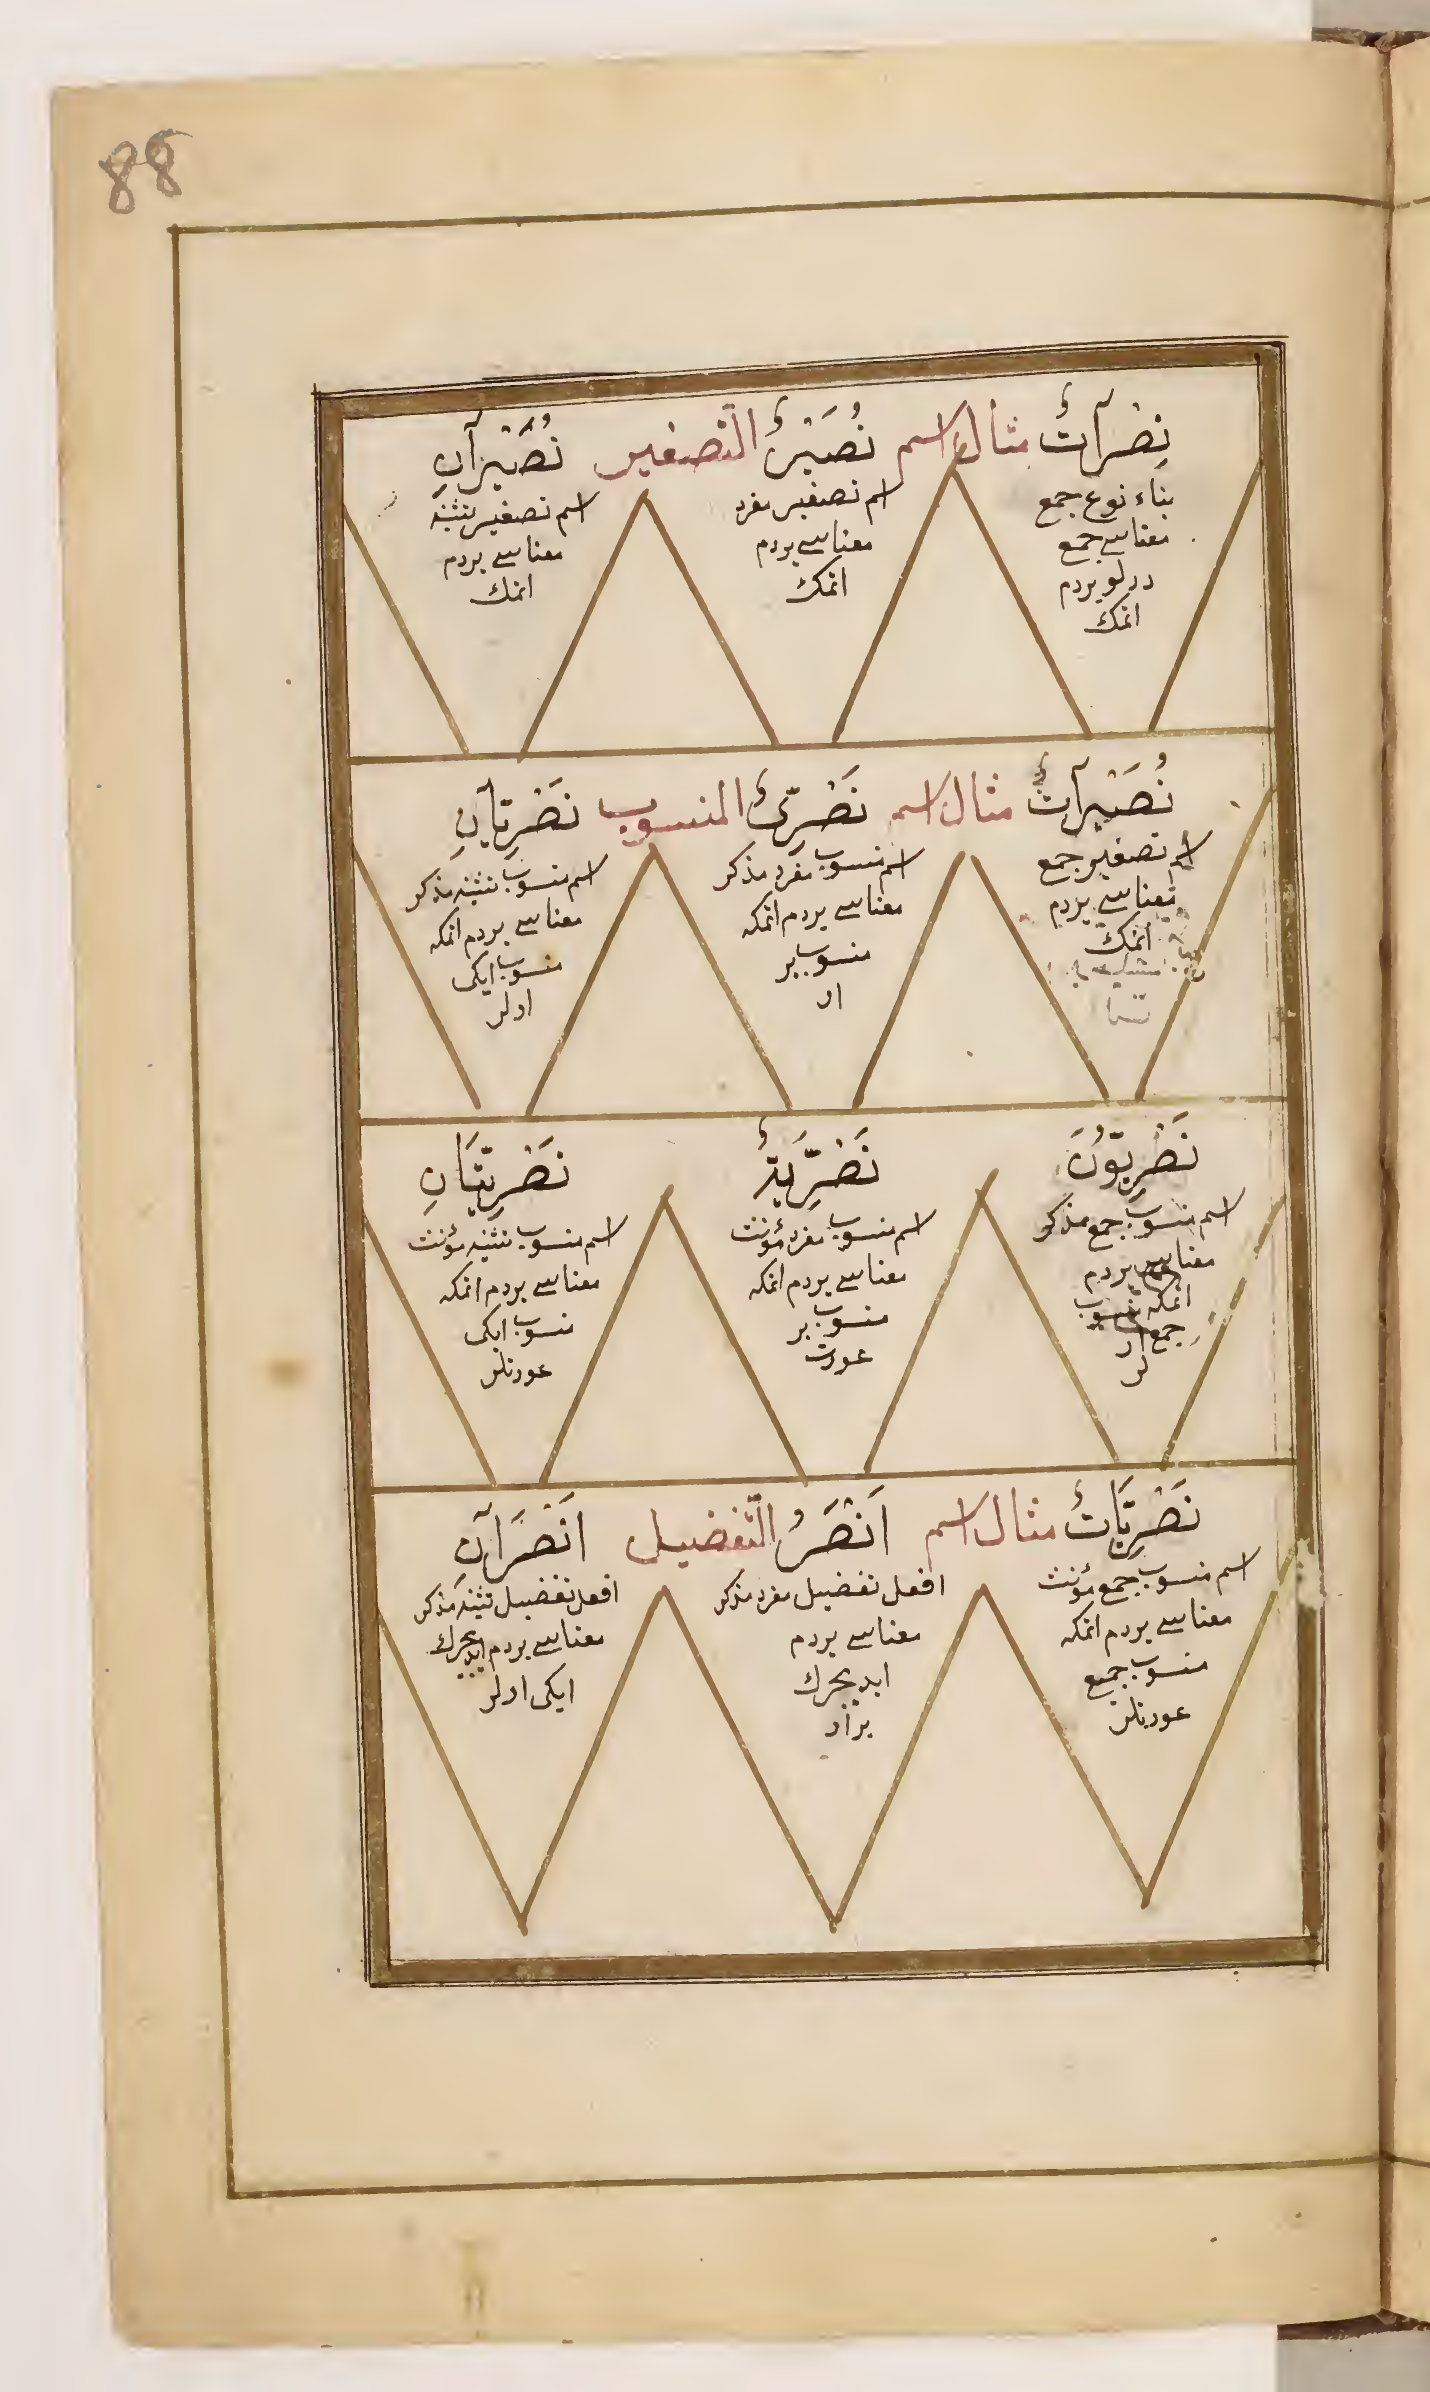 88
نِصْرَاتٌ مثال اسم نُصَيْرٌ التّصغير نُصَيْرَانِ
بناء نوع جمع
معناسى جمع
درلو يردم
اتمك
اسم تصغير مفرد
معناسى يردم
اتمك
اسم تصغير تثنيه
معناسى يردم
اتمك
نُصَيْرَاتٌ مثال اسم نَصْرِىٌّ المنسوب نَصْرِيَّانِ
اسم تصغير جمع
معناسى يردم
اتمك
اسم منسوب مفرد مذكر
معناسى يردم اتمكه
منسوب بر
ار
اسم منسوب تثنيه مذكر
معناسى يردم اتمكه
منسوب ايكى
ارلر
نَصْرِيُّونَ نَصْرِيَّةٌ نَصْرِيَّتَانِ
اسم منسوب جمع مذكر
معناسى يردم
اتمكه منسوب
جمع ار
لر
اسم منسوب مفرد مؤنث
معناسى يردم اتمكه
منسوب بر
عورت
اسم منسوب تثنيه مؤنث
معناسى يردم اتمكه
منسوب ايكى
عورتلر
نَصْرِيَّاتٌ مثال اسم اَنْصَرُ التّفضيل اَنْصَرَانِ
اسم منسوب جمع مؤنث
معناسى يردم اتمكه
منسوب جميع
عورتلر
افعل تفضيل مفرد مذكر
معناسى يردم
ايديجرك
بر ار
افعل تفضيل تثنيه مذكر
معناسى يردم ايديجرك
ايكى ارلر